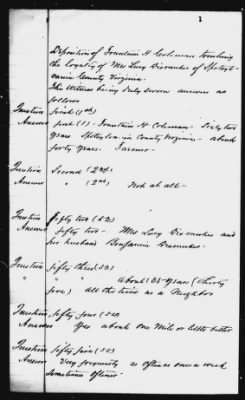 1
Deposition of Fountain H Coleman touching
the loyalty of Mrs Lucy Dismukes of Spotsyl-
vania County Virginia.
The witness being duly sworn answers as
follows
Question First (1st)
Answer first (1) - Fountain H Coleman - Sixty two
years Spotsylvania County Virginia - about
forty years. Farmer -
Question Second (2nd)
Answer " (2nd) Not at all -
Question fifty two (52)
Answer fifty two - Mrs Lucy Dismukes and
her husband Benjamin Dismukes -
Question fifty three (53)
" " About (35 years (thirty
five) all the time as a Neighbor
Question fifty four (54)
Answer Yes about one mile or little better
Question fifty five (55)
Answer Very frequently as often as once a week
Sometimes oftener -